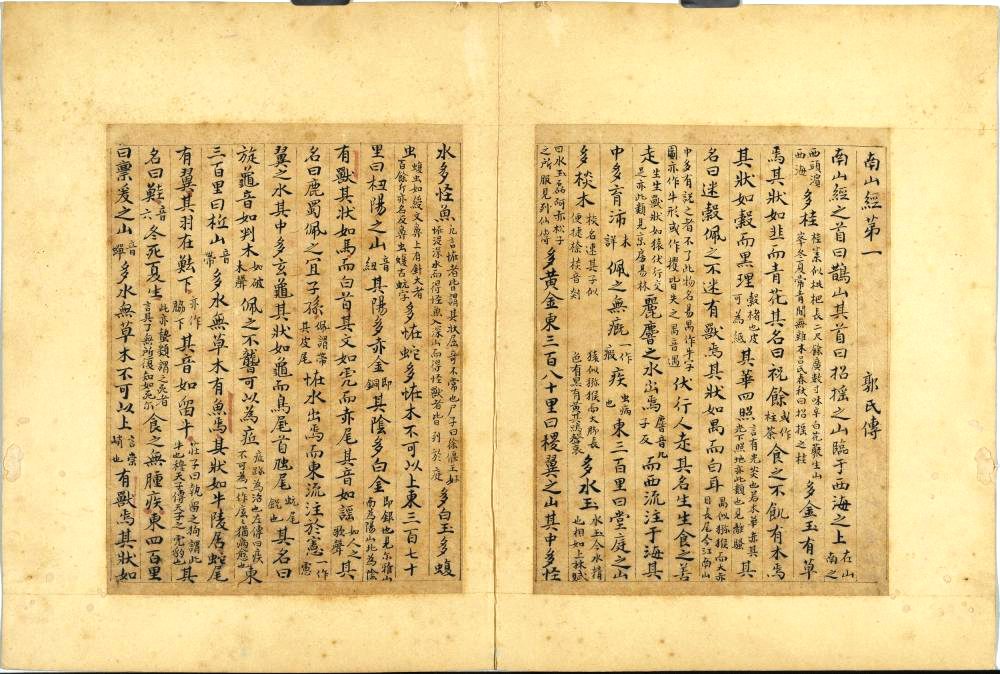 南山經第一 郭氏傳
南山經之首曰鵲山其首曰招搖之山臨于西海之上在山南之
西頭濱西海多桂桂葉似枇杷長二尺餘廣數寸味辛白花叢生山峯冬夏常青間無雜木呂氏春秋曰招搖之桂多金玉有草
焉其狀如韭而青花其名曰祝餘或作桂荼食之不飢有木焉
其狀如榖而黑理榖楮也皮可為紙其華四照言有光炎也若木華赤其光下照地亦此類也見離騷其
名曰迷榖佩之不迷有獸焉其狀如禺而白耳禺似獼猴而大赤目長尾今江南山
中多有說之者不了此物名禺作牛字圖亦作牛形或作猴皆失之禺音遇伏行人走其名生生食之善
走生生獸狀如猿伏行交足亦此類見京房易林麗麂之水出焉麂音几而西流注于海其
中多育沛未詳佩之無瘕一作瘕疾虫病也東三百里曰堂庭之山
多棪木棪名速其子似便捷捻棪音剡猨似獼猴而大脚長色有黑有黃其鳴聲哀多水玉水玉今水精也相如上林賦
曰水玉磊砢赤松子之所服見列仙傳多黃金東三百八十里曰稷翼之山其中多怪
水多怪魚凡言怪者皆謂其狀屈奇不常也尸子曰徐偃王好怪没深水而得怪魚入深山而得怪獸者皆列於庭多白玉多蝮
虫蝮虫如綬文鼻上有針大者百餘斤亦名反鼻虫蝮古虺字多怪蛇多怪木不可以上東三百七十
里曰杻陽之山音紐其陽多赤金即銅其陰多白金即銀也見尔雅山南為陽山北為陰
有獸其狀如馬而白首其文如虎而赤尾其音如謠如人之歌聲其
名曰鹿蜀佩之宜子孫佩謂帶其皮尾恠水出焉而東流注於憲一作憲
翼之水其中多玄龜其狀如龜而鳥尾首虺尾虺尾銳也其名曰
旋龜音如判木如破木聲佩之不聾可以為疷疷躃為治也左傳曰疾不可為一作底之猶病愈也東
三百里曰柢山音帶多水無草木有魚焉其狀如牛陵居蛇尾
有翼其羽在魼下亦作脇下其音如留牛莊子曰執留之狗謂此牛也穆天子傳天子之虎豹也其
名曰鯥音六冬死夏生此亦蟄類謂之死者言其了無所復知如死尔食之無腫疾東四百里
曰亶爰之山音蟬多水無草木不可以上言崇峭也有獸焉其狀如